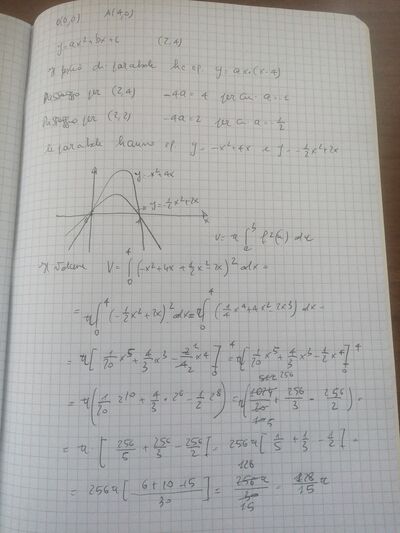 O(0,0) A(4,0)
y=ax²+bx+c (2,4)
di parabole ha eq. y=ax(x-4)
Passaggio per (2,4) -4a=4 per cui a=-1
Passaggio per (2,2) -4a=2 per cui a=-1/2
le parabole hanno eq. y=-x²+4x e y=-1/2x²+2x
y=-x²+4x
y=-1/2x²+2x
x
V=π∫ₐᵇ f²(x) dx
Il volume V=∫₀⁴(-x²+4x+1/2x²-2x)² dx=
=π∫₀⁴(-1/2x²+2x)² dx=π∫₀⁴(1/4x⁴+4x²-2x³) dx=
=π[1/20x⁵+4/3x³-2/4x⁴]₀⁴=π[1/20x⁵+4/3x³-1/2x⁴]₀⁴
=π(1/20 2¹⁰+4/3·2⁶-1/2 2⁸)=π(1024/20+256/3-256/2)=
=π·[256/5+256/3-256/2]=256π[1/5+1/3-1/2]=
=256π[6+10-15/30]=256/30=128/15π